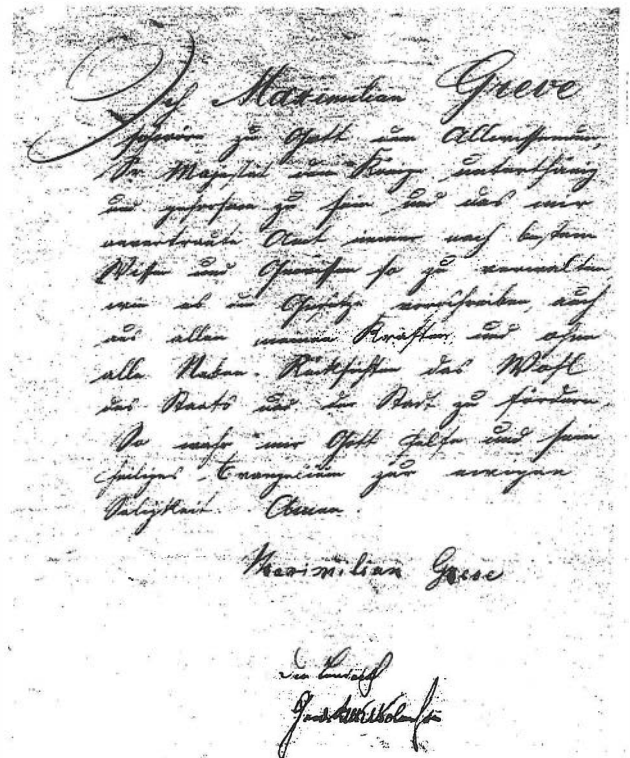 Ich Maximilian Greve
schwöre zu Gott dem Allwissenden,
Sr Majestät dem Könige unterthänig
und gehorsam zu sein und das mir
anvertraute Amt immer nach bestem
Wissen und Gewissen so zu verwalten
wie es die Gesetze vorschreiben, auch
aus allen meinen Kräften und ohne
alle Neben-Rücksichten das Wohl
des Staats und der Stadt zu fördern.
So wahr mir Gott helfe und sein
heiliges Evangelium zur ewigen
Seligkeit. Amen.
Maximilian Greve
Der Landrath